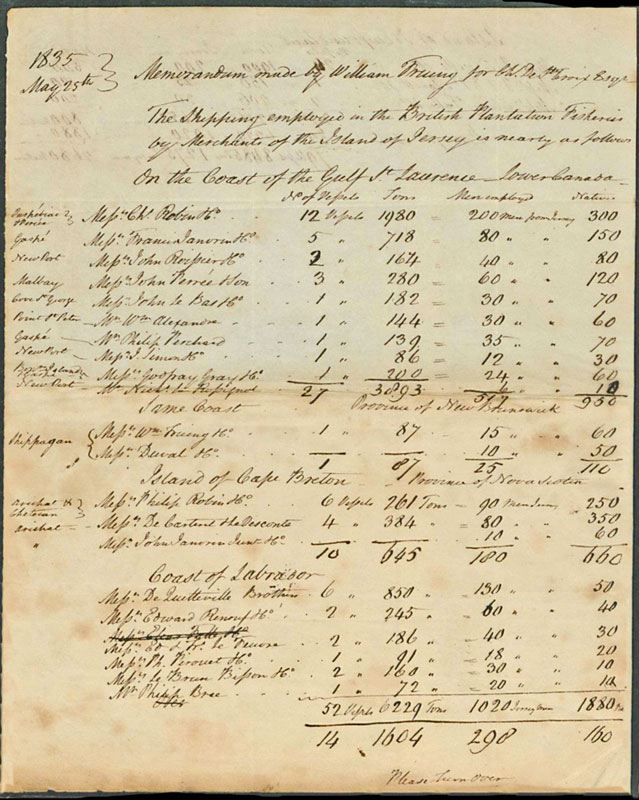 1835
May 25th
Memorandum made by William Fruing for Ch. De Ste Croix Esqr
The Shipping employed in the British Plantation Fisheries
by Merchants of the Island of Jersey is nearly as follows
On the Coast of the Gulf St Laurence - Lower Canada -
No of Vessels Tons Men employd Natives
Messrs Chs Robin & Co. 12 Vessels 1980 = 200 Men from Jersey 300
Gaspé Messrs Francis Janvrin & Co. 5 " 718 = 80 " " 150
New Port Messrs John Rossier & Co. 2 " 164 = 40 " " 80
Malbay Messrs John Perrée & Son 3 " 280 = 60 " " 120
Cove St George Messrs John Le Bas & Co. 1 " 182 = 30 " " 70
Point St Peter - Mr Wm Alexandre 1 " 144 = 30 " " 60
Gaspé - Mr Philip Perchard 1 " 139 = 35 " " 70
New Port - Messrs J. Simon & Co. 1 " 86 = 12 " " 30
Messrs Godfray Gray & Co. 1 " 200 = 24 " " 60
New Port - 10
27 3893 517 950
Same Coast Province of New Brunswick
Shippagan Messrs Wm Fruing & Co. 1 " 87 15 " 60
" Messrs Duval & Co. 10 " 50
1 87 25 110
Island of Cape Breton - Province of Nova Scotia
Arichat & Chetican Messrs Philip Robin & Co. 6 Vessels 261 Tons - 90 Men 250
Arichat - Messrs De Carteret & Le Vesconte 4 " 384 " = 80 " 350
" Messrs John Janvrin & Co. 10 " 60
10 645 180 660
Coast of Labrador
Messrs De Quetteville Brothers 6 " 850 " 130 " " 50
Messrs Edward Renouf & Co. 2 " 245 " 60 " " 40
Messrs Ed & Le Feuvre 2 " 186 " 40 " " 30
Messrs Ph. Perouet & Co. 1 " 91 " 18 " " 20
Messrs Le Brun Bisson & Co. 2 " 160 " 30 " " 10
Mr Philip Bree 1 " 72 " 20 " " 10
52 Vessels 6229 Tons 1020 Jerseymen 1880
14 1604 298 160
Please turn over